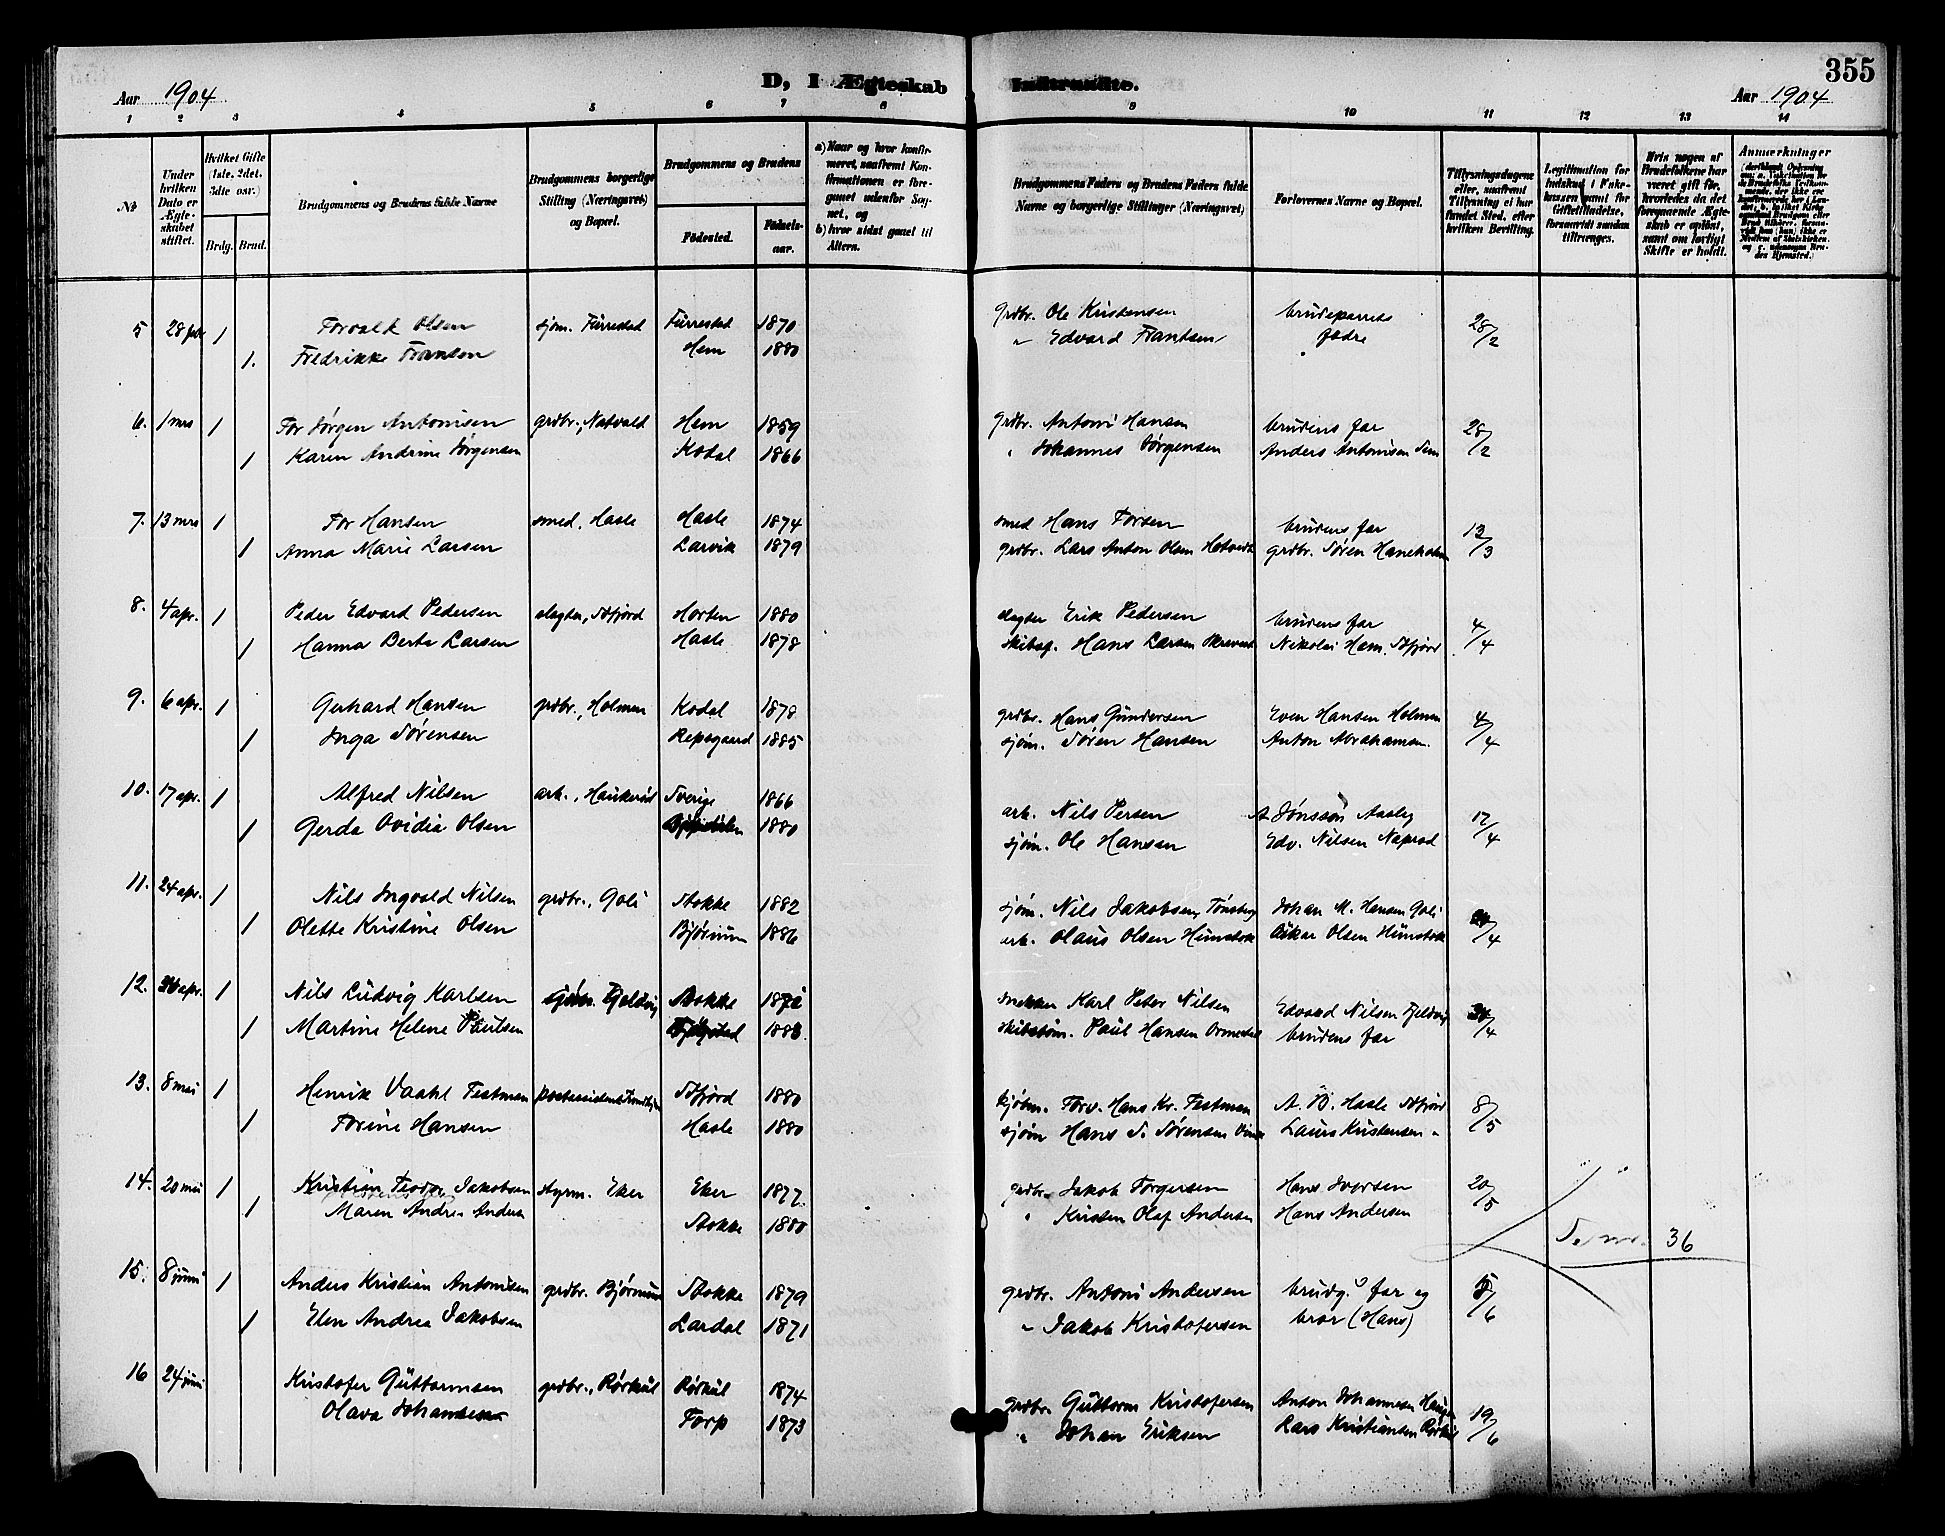 355
Aar 1904 D, I Ægteskab Indtraadte. Aar 1904
1 2 3 4 5 6 7 8 9 10 11 12 13 14
№
Under hvilken Dato er Ægteskabet stiftet.
Hvilket Gifte (1ste, 2det, 3die osv.)
Brdg. Brud.
Brudgommens og Brudens fulde Navne
Brudgommens borgerlige Stilling (Næringsvei) og Bopæl.
Brudgommens og Brudens
Fødested. Fødselsaar.
a) Naar og hvor konfirmeret, saafremt Konfirmationen er foregaaet udenfor Sognet, og
b) hvor sidst gaaet til Alters.
Brudgommens Faders og Brudens Faders fulde Navne og borgerlige Stillinger (Næringsvei)
Forlovernes Navne og Bopæl.
Tillysningsdagene eller, saafremt Tillysning ei har fundet Sted, efter hvilken Bevilling.
Hvis nogen af Brudefolkene har været gift før, hvorledes da det foregaaende Ægteskab er opløst, samt om lovligt Skifte er holdt.
Anmærkninger
5 28 feb 1 Torvald Olsen sjøm. Furrestad Furrestad 1870 Grdbr. Ole Kristensen brudeparrets 28/2
1. Fredrikke Fransen Hem 1880 " Edvard Frantsen fædre
6. 1 mrs 1 Tor Jørgen Antonisen grdbr., Natvald Hem 1859 Grdbr. Antoni Hansen brudens far 28/2
1 Karen Andrine Jørgensen Kodal 1866 " Johannes Jørgensen Anders Antonisen Sem
7. 13 mrs 1 Tor Hansen smed, Hasle Hasle 1874 smed Hans Torsen brudens far 13/3
1 Anna Marie Larsen Larvik 1879 grdbr. Lars Anton Olsen grdbr. Søren Haneholm
8. 4 apr. 1 Peder Edvard Pedersen slagter, Sfjord Horten 1880 slagter Erik Pedersen brudens far 4/4
1 Hanna Berta Larsen Hasle 1878 Hans Larsen Nikolai Ham. Sfjord
9. 6 apr. 1 Gerhard Hansen grdbr., Holmen Kodal 1878 grdbr. Hans Gundersen Even Hansen Holmen 4/4
1 Inga Sørensen Repsgaard 1885 sjøm. Søren Hansen Anton Abrahamsen.
10. 17 apr. 1 Alfred Nilsen arb., Haukerød Sverige 1866 arb. Nils Persen A Jønsson Aasly 17/4
1 Gerda Ovidia Olsen 1880 sjøm. Ole Hansen Edv. Nilsen Næprød
11. 24 apr. 1 Nils Ingvald Nilsen grdbr., Goli Stokke 1882 sjøm. Nils Jakobsen, Tønsberg Johan M. Hansen Goli 24/4
1 Olette Kristine Olsen Bjørnum 1886 arb. Olaus Olsen Himstok Oskar Olsen Himstok
12. apr. 1 Nils Ludvig Karlsen sjøm. Fjeldvig Stokke snekker Karl Peter Nilsen Edvard Nilsen Fjeldvig
1 Martine Helene Paulsen Paul Hansen Ormestad brudens far
13. 8 mai 1 Henrik Vaahl Testman Sfjord 1880 kjøbm. Torv. Hans Kr. Testman A. B. Hasle Sfjord 8/5
1 Torine Hansen Hasle 1880 sjøm Hans S. Sørensen Laurs Kristensen "
14. 20 mai 1 Kristian Teodor Jakobsen styrm. Eker Eker 1877 grdbr. Jakob Torgersen Hans Iversen 20/5
1 Maren Andrea Anders Stokke 1880 " Kristen Olaf Andersen Hans Andersen
Se nr. 36
15. 8 juni 1 Anders Kristian Antonisen grdbr. Bjørnum Stokke 1879 grdbr. Antoni Andersen brudg. far og 5/6
1 Elen Andrea Jakobsen Lardal 1871 " Jakob Kristofersen bror (Hans)
16 24 juni Kristofer Guttormsen grdbr., Rørkul Rørkul 1874 grdbr. Guttorm Kristofersen Anton Johannesen Haugen 19/6
Olava Johansen Torp 1873 " Johan Eriksen Lars Kristiansen Rørkul